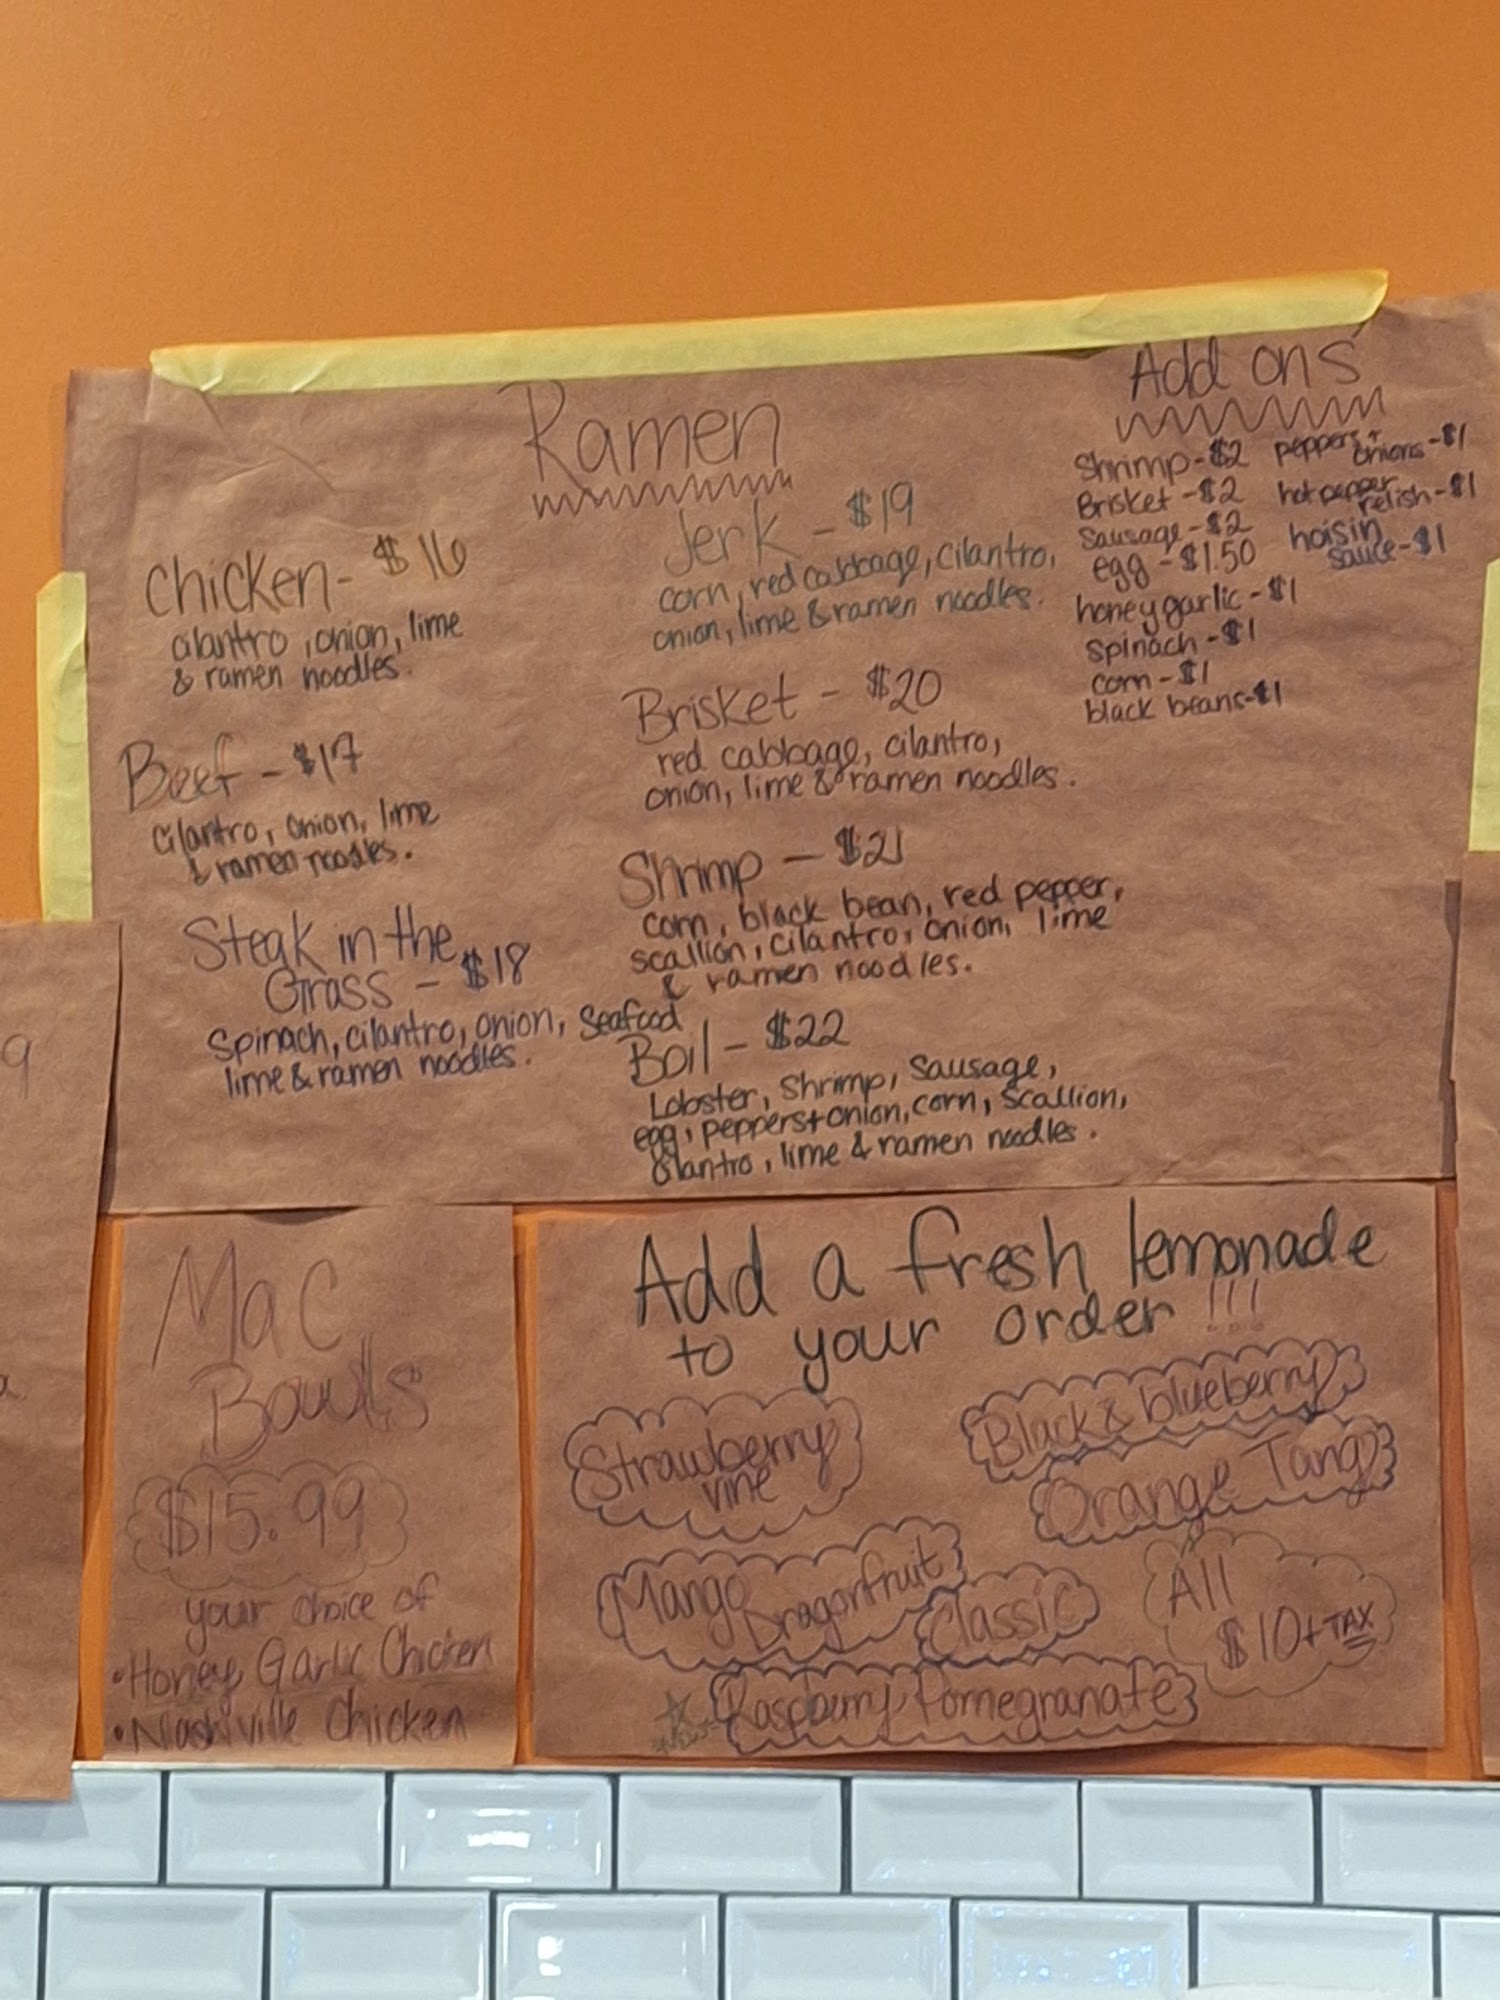 Ramen
Chicken - $16
cilantro, onion, lime
& ramen noodles.
Beef - $17
cilantro, onion, lime
& ramen noodles.
Steak in the
Grass - $18
Spinach, cilantro, onion,
lime & ramen noodles.
Jerk - $19
corn, red cabbage, cilantro,
onion, lime & ramen noodles.
Brisket - $20
red cabbage, cilantro,
onion, lime & ramen noodles.
Shrimp - $21
corn, black bean, red pepper,
scallion, cilantro, onion, lime
& ramen noodles.
Seafood
Boil - $22
Lobster, Shrimp, Sausage,
egg, peppers + onion, corn, scallion,
cilantro, lime & ramen noodles.
Add ons
Shrimp - $2
Brisket - $2
Sausage - $2
egg - $1.50
honey garlic - $1
spinach - $1
corn - $1
black beans - $1
peppers +
onions - $1
hot pepper
relish - $1
hoisin
sauce - $1
9
Mac
Bowls
$15.99
your choice of
• Honey Garlic Chicken
• Nashville Chicken
Add a fresh lemonade
to your order!!!
Strawberry
vine
Black & blueberry
Orange Tang
Mango
Dragonfruit
Classic
All
$10 + TAX
Raspberry Pomegranate